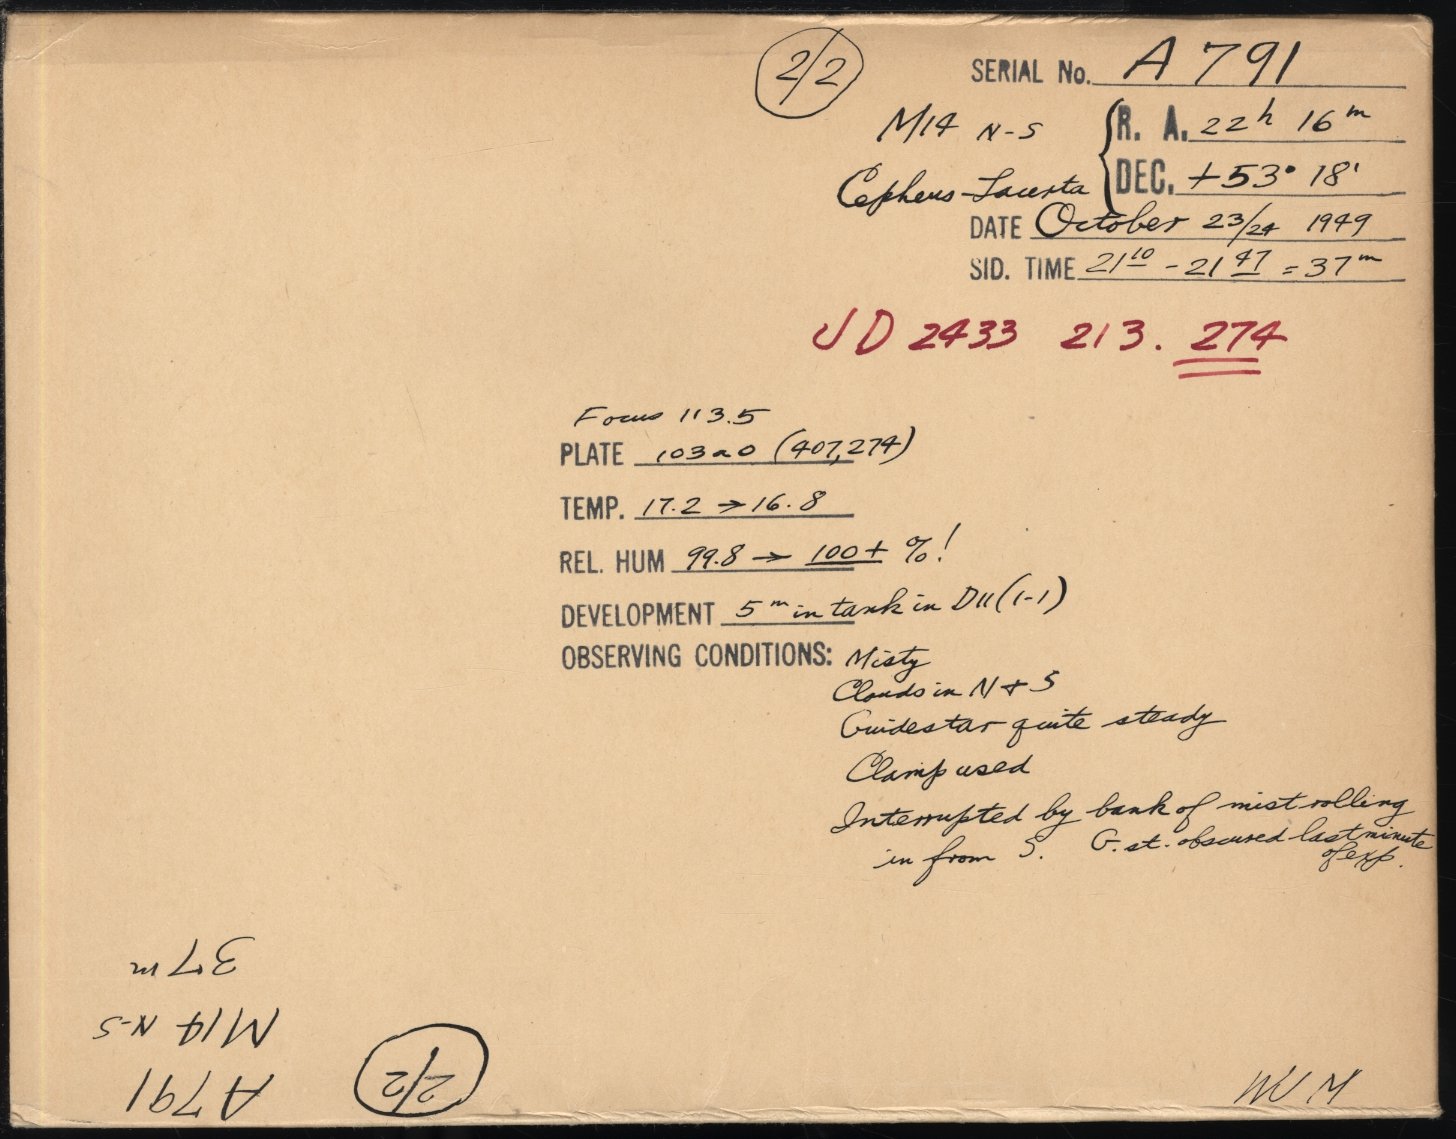 2/2
SERIAL No. A 791
M14 N-S { R. A. 22h 16m
Cepheus-Lacerta DEC. +53° 18'
DATE October 23/24 1949
SID. TIME 21 10 - 21 47 = 37m
JD 2433 213. 274
Focus 113.5
PLATE 103aO (407,274)
TEMP. 17.2 → 16.8
REL. HUM 99.8 → 100+ %!
DEVELOPMENT 5m in tank in D11(1-1)
OBSERVING CONDITIONS: Misty
Clouds in N + S
Guidestar quite steady
Clamp used
Interrupted by bank of mist rolling
in from S. G. st. obscured last minute
of exp.
37m
M14 N-S
A791
2/2